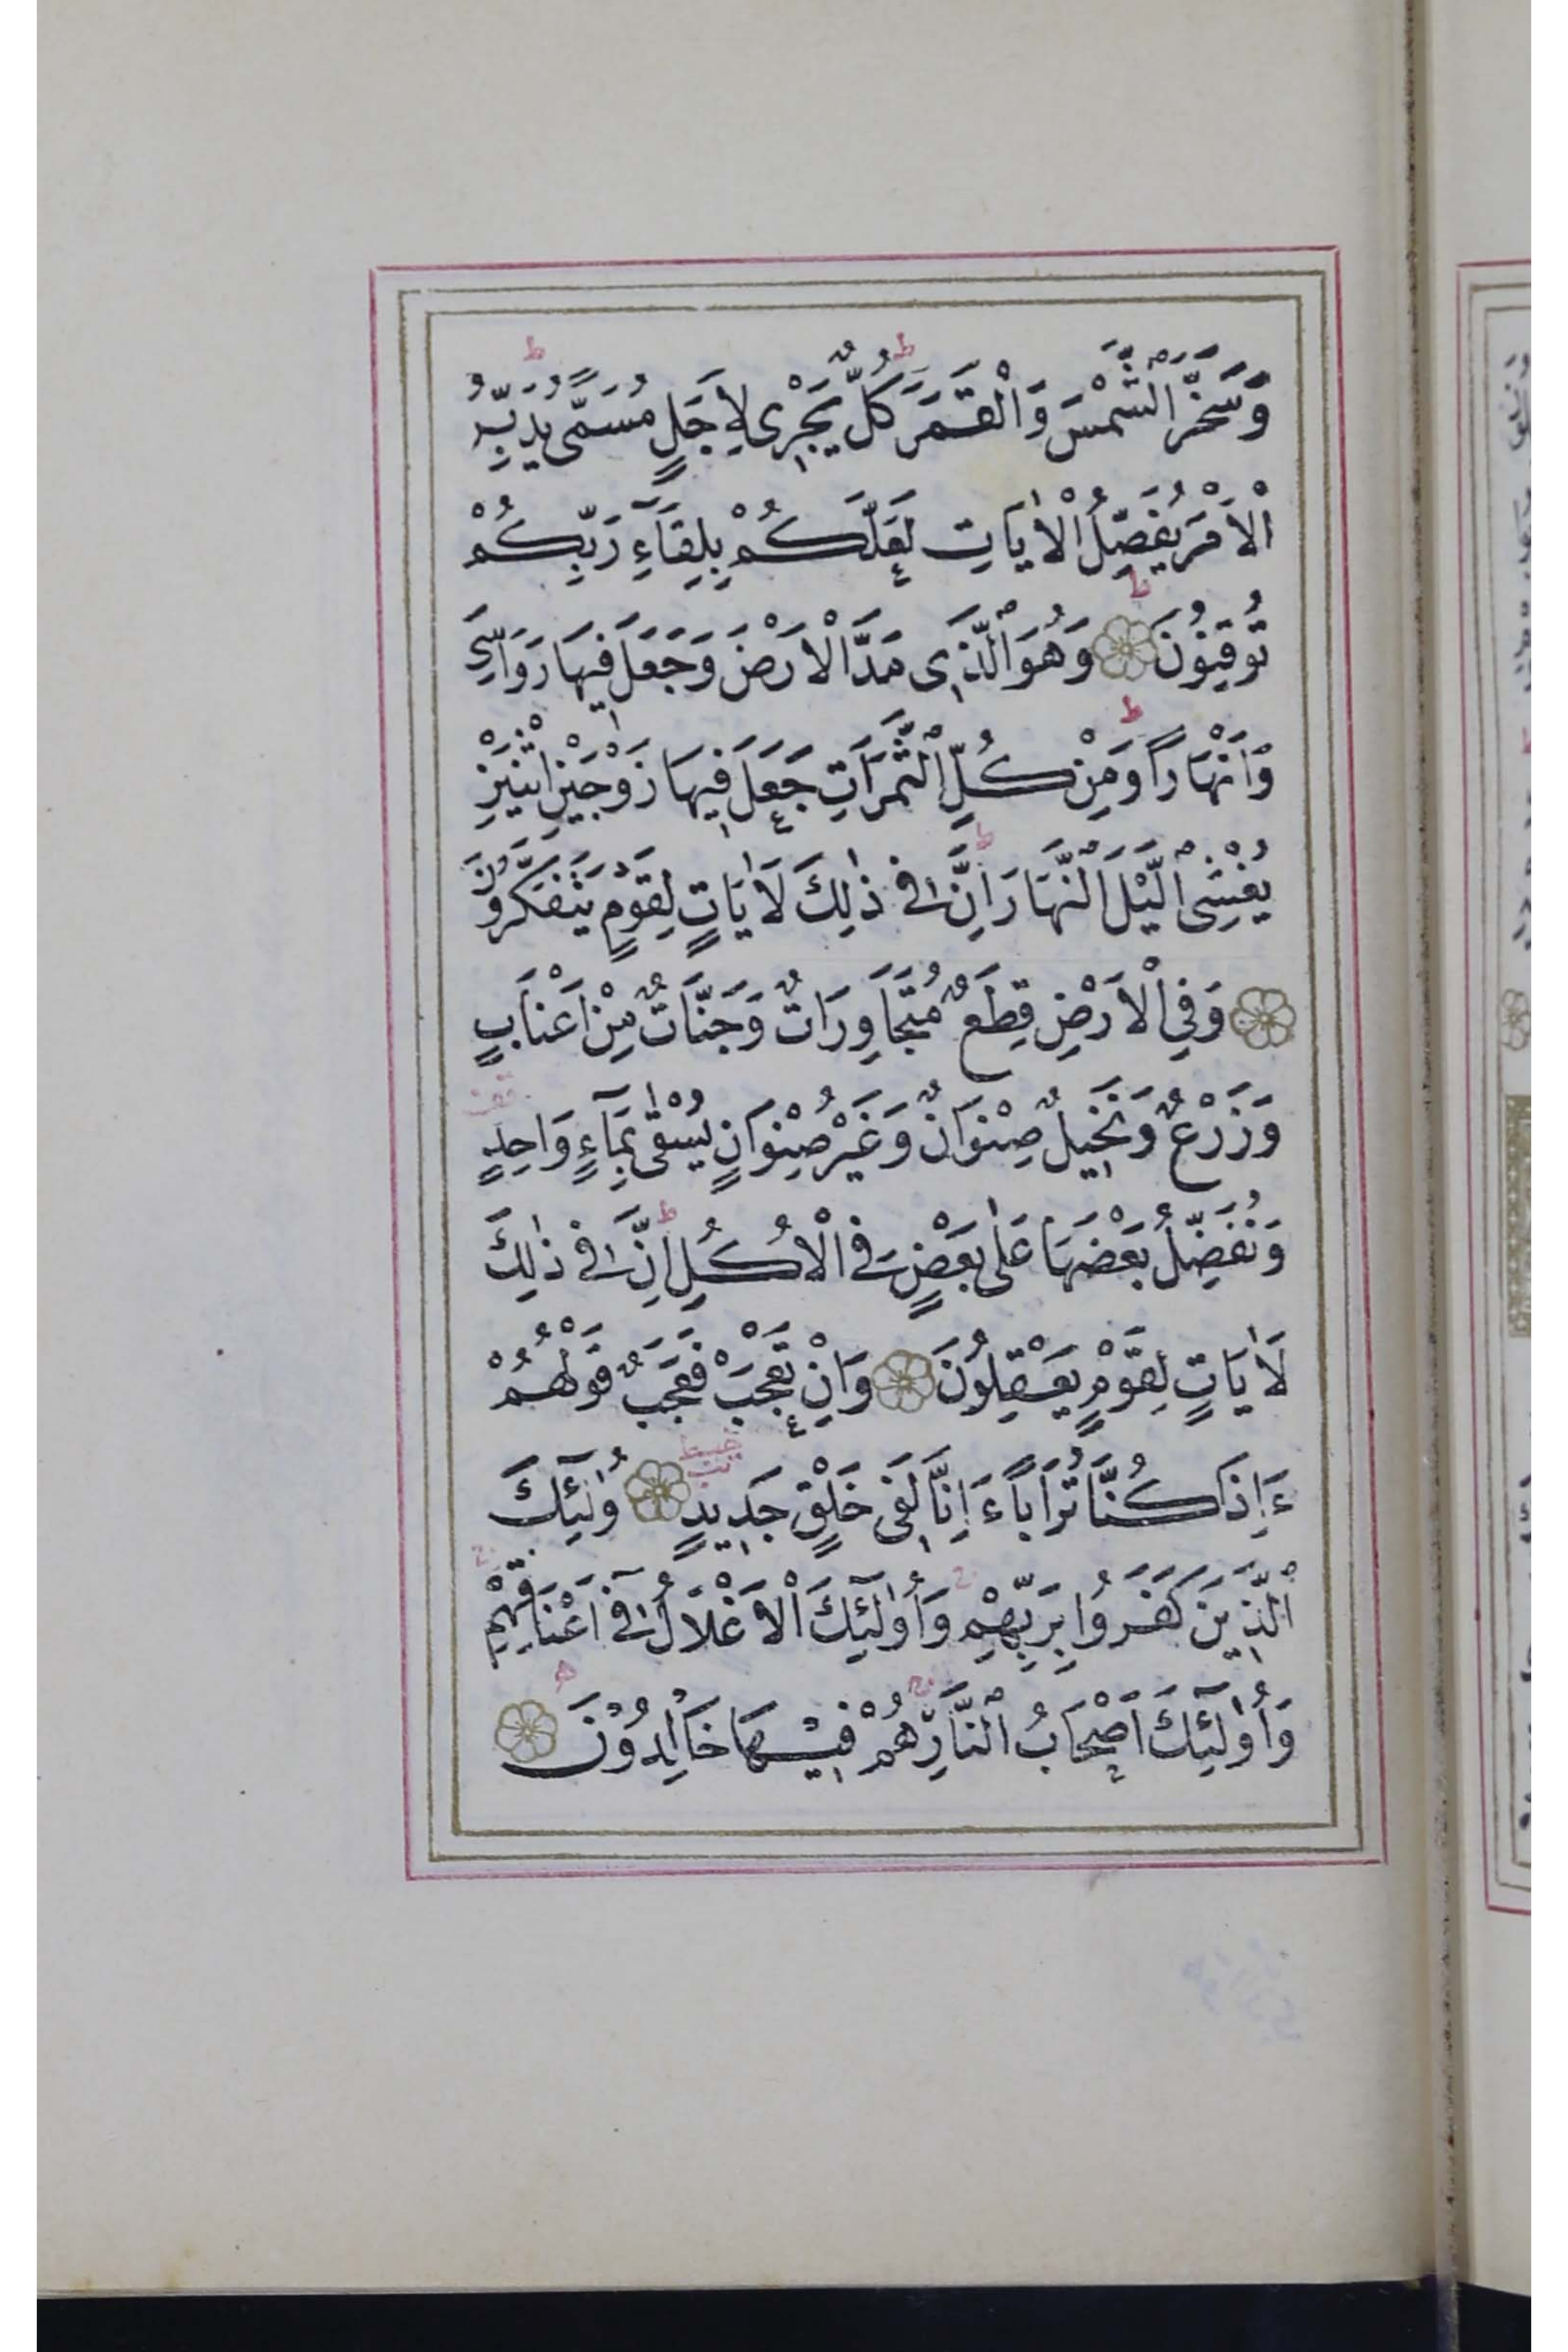 وَسَخَّرَ الشَّمْسَ وَالْقَمَرَ كُلٌّ يَجْرِى لِاَجَلٍ مُسَمًّى يُدَبِّرُ
الْاَمْرَ يُفَصِّلُ الْاٰيَاتِ لَعَلَّكُمْ بِلِقَآءِ رَبِّكُمْ
تُوقِنُونَ وَهُوَ الَّذِى مَدَّ الْاَرْضَ وَجَعَلَ فِيهَا رَوَاسِىَ
وَاَنْهَارًا وَمِنْ كُلِّ الثَّمَرَاتِ جَعَلَ فِيهَا زَوْجَيْنِ اثْنَيْنِ
يُغْشِى الَّيْلَ النَّهَارَ اِنَّ فِى ذٰلِكَ لَاٰيَاتٍ لِقَوْمٍ يَتَفَكَّرُونَ
وَفِى الْاَرْضِ قِطَعٌ مُتَجَاوِرَاتٌ وَجَنَّاتٌ مِنْ اَعْنَابٍ
وَزَرْعٌ وَنَخِيلٌ صِنْوَانٌ وَغَيْرُ صِنْوَانٍ يُسْقٰى بِمَآءٍ وَاحِدٍ
وَنُفَضِّلُ بَعْضَهَا عَلٰى بَعْضٍ فِى الْاُكُلِ اِنَّ فِى ذٰلِكَ
لَاٰيَاتٍ لِقَوْمٍ يَعْقِلُونَ وَاِنْ تَعْجَبْ فَعَجَبٌ قَوْلُهُمْ
ءَاِذَا كُنَّا تُرَابًا ءَاِنَّا لَفِى خَلْقٍ جَدِيدٍ اُولٰٓئِكَ
الَّذِينَ كَفَرُوا بِرَبِّهِمْ وَاُولٰٓئِكَ الْاَغْلَالُ فِىٓ اَعْنَاقِهِمْ
وَاُولٰٓئِكَ اَصْحَابُ النَّارِ هُمْ فِيهَا خَالِدُونَ